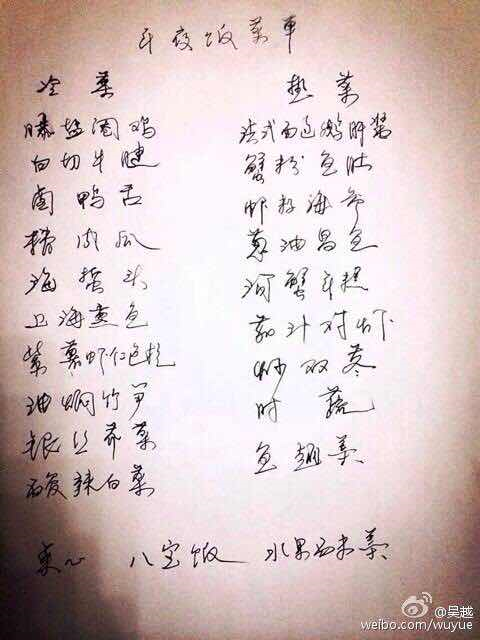 年夜饭菜单
冷菜
盐焗鸡
白切牛腱
卤鸭舌
瓜
海蜇头
上海熏鱼
紫薯虾仁色拉
油焖竹笋
银丝菜
酸辣白菜
热菜
法式面包鹅肝酱
蟹粉鱼肚
虾籽海参
葱油昌鱼
河蟹年糕
茄汁对虾
炒双冬
时蔬
鱼翅羹
点心 八宝饭 水果西米羹
@吴越
weibo.com/wuyue